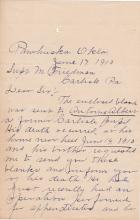 Pawhuska Okla
June 17 1910
Supt M. Friedman
Carlisle Pa
Dear Sir:
The enclosed blank
was sent to
a former Carlisle
His death occurred at his
home near here June 14 1910
and his brother
me to send you these
blanks and inform you
of his death. He
just recently had an
operation performed
for appendicitis and he